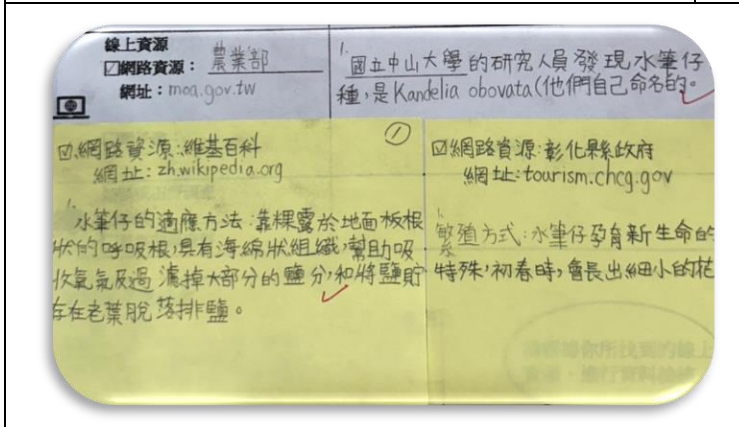 線上資源
☑網路資源：農業部
網址：moa.gov.tw
1. 國立中山大學的研究人員發現水筆仔
種，是Kandelia obovata(他們自己命名的。
①
☑網路資源：維基百科
網址：zh.wikipedia.org
1. 水筆仔的適應方法：靠裸露於地面板根
狀的呼吸根，具有海綿狀組織，幫助吸
收氧氣及過濾掉大部分的鹽分，和將鹽貯
存在老葉脫落排鹽。
☑網路資源：彰化縣政府
網址：tourism.chcg.gov
1. 繁殖方式：水筆仔孕育新生命的
特殊，初春時，會長出細小的花